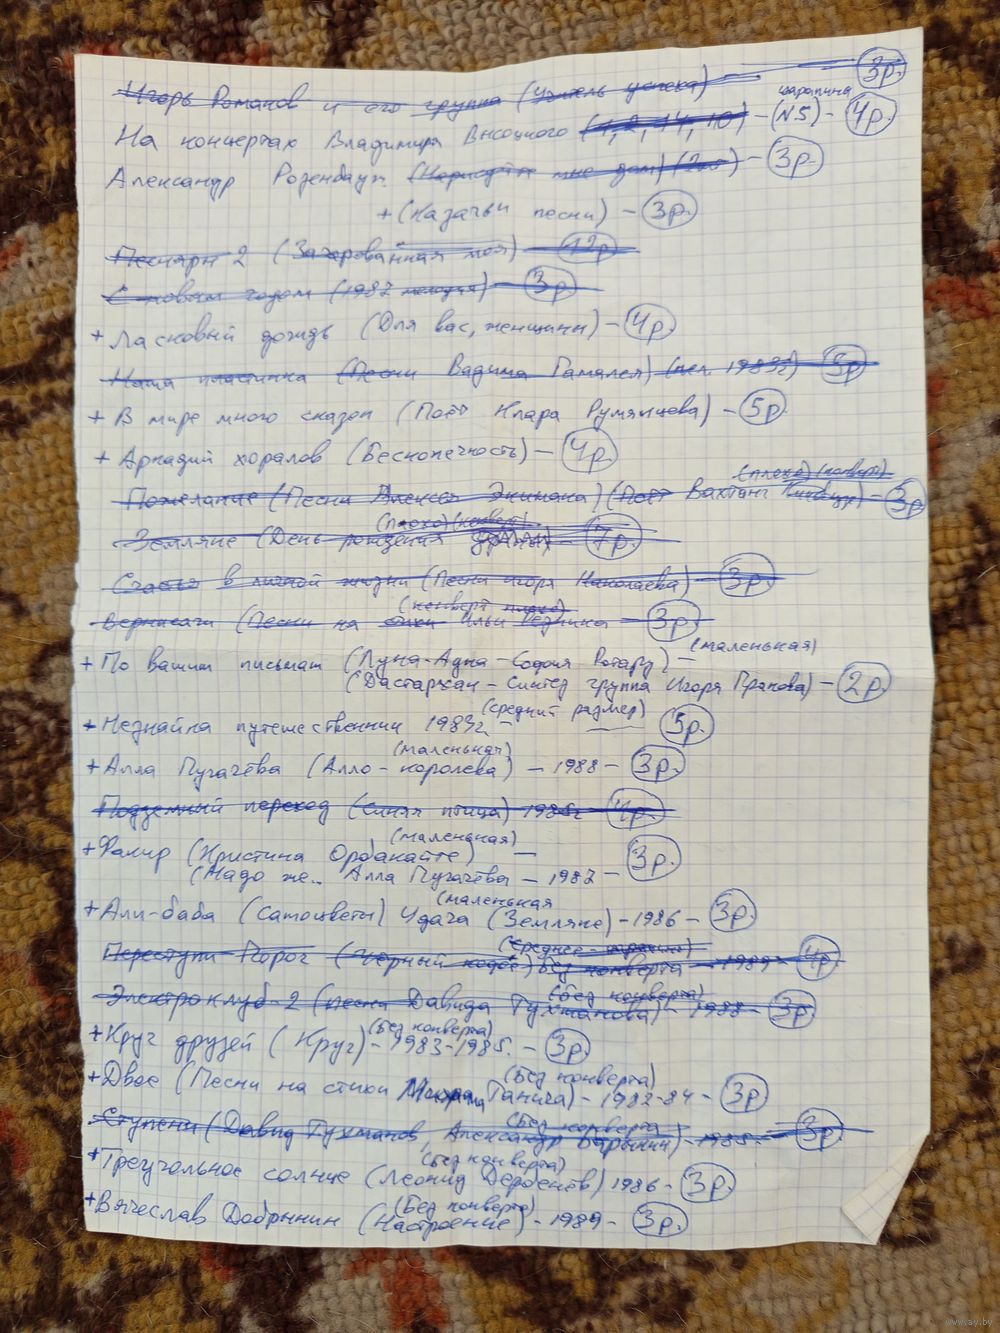 Игорь Романов и его группа (Измель успеха) — 3р.
царапина
На концертах Владимира Высоцкого (1, 2, 14, 10) - (N5) - 4р.
Александр Розенбаум (Нарисуйте мне дом) - 3р.
+ (Казачьи песни) - 3р.
Песняры 2 (Зачарованная моя) - 12р
С новым годом (1987 мелодия) - 3р
+ Ласковый дождь (Для вас, женщины) - 4р
Наша пластинка (Песни Вадима Гамалея) (исп. 1983г) 5р
+ В мире много сказок (Поёт Клара Румянцева) - 5р
+ Аркадий хоралов (Бесконечность) - 4р.
(плохо) (конверт)
Пожелание (Песни Алексея Экимяна) (Поёт Вахтанг Кикабидзе) - 3р
(плохо) (конверт)
Земляне (День рождения Земли) - 7р.
Счастье в личной жизни (Песни Игоря Николаева) - 3р
(конверт плохо)
Вернисаж (Песни на стихи Ильи Резника - 3р.
(маленькая)
+ По вашим письмам (Луна-Луна-София Ротару) -
(Дастархан - Синтез группа Игоря Гранова) - 2р.
(средний размер)
+ Незнайка путешественник 1983г - 5р.
(маленькая)
+ Алла Пугачёва (Алло-королева) - 1988 - 3р.
Подземный переход (Синяя птица) 1986г 4р.
(маленькая)
+ Факир (Кристина Орбакайте) - 3р.
(Надо же.. Алла Пугачёва - 1987 -
(маленькая
+ Али-баба (Самоцветы) Удача (Земляне) - 1986 - 3р.
(Среднее - царапины)
Переступи Порог (Чёрный кофе) Без конверта - 1989 - 4р
(без конверта)
Электроклуб-2 (песни Давида Тухманова) - 1988 - 3р
(Без конверта)
+ Круг друзей (Круг) - 1983-1985. - 3р.
(Без конверта)
+ Двое (Песни на стихи Михаила Танича) - 1982-84 - 3р
(Без конверта
Ступени (Давид Тухманов, Александр Барыкин) - 1985 - 3р.
(Без конверта)
+ Треугольное солнце (Леонид Дербенёв) 1986 - 3р.
(Без конверта)
+ Вячеслав Добрынин (Настроение) - 1989 - 3р.
www.ay.by